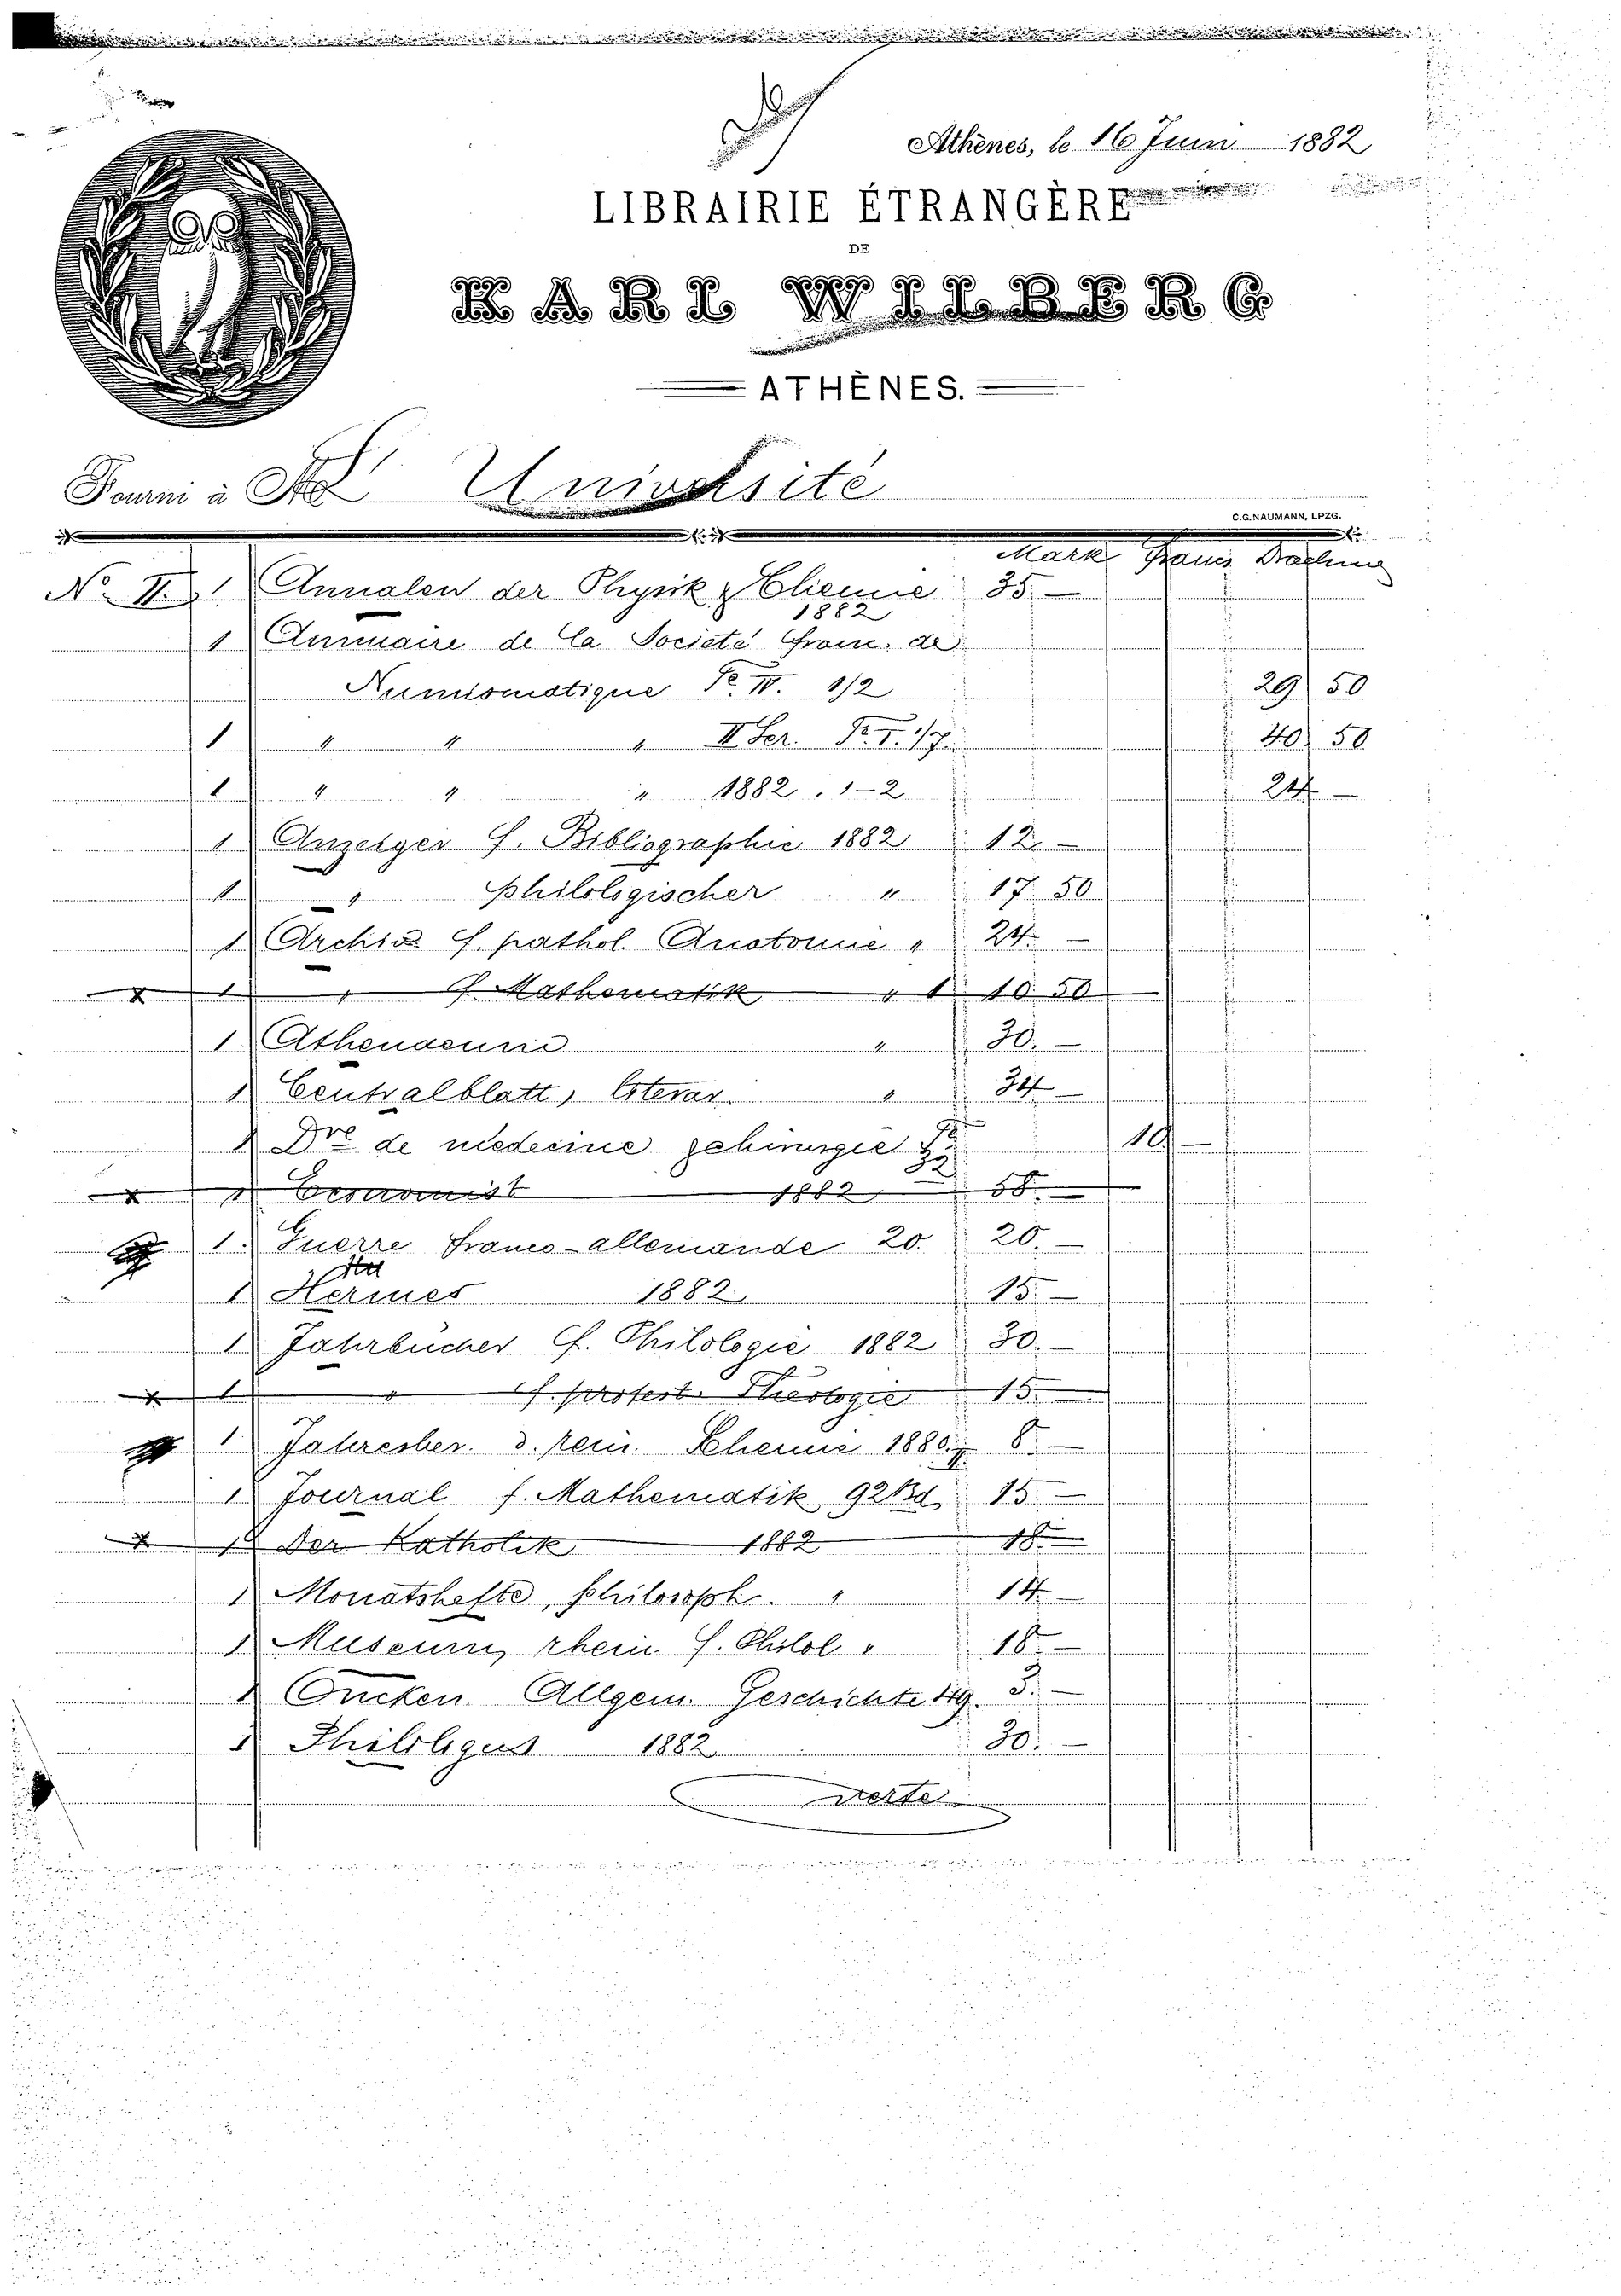 Athènes, le 16 Juni 1882
LIBRAIRIE ÉTRANGÈRE
DE
KARL WILBERG
ATHÈNES.
Fourni à l' Université
C.G. NAUMANN, LPZG.
Mark Francs Drachmes
No II. 1 Annalen der Physik & Chemie 35. —
1882
1 Annuaire de la Societé franc. de
Numismatique Te. IV. 1/2 29 50
1 " " " II Ser. Te. I. 1/7. 40 50
1 " " " 1882. 1-2 24 —
1 Anzeiger f. Bibliographie 1882 12. —
1 " philologischer " 17. 50
1 Archiv f. pathol. Anatomie " 24. —
1 " f. Mathematik " 1 10 50
1 Athenaeum " 30. —
1 Centralblatt, literar. " 34 —
1 Dre de medecine & chirurgie 10 —
1 Economist 1882 58. —
1. Guerre franco-allemande 20. 20. —
1 Hermes 1882 15. —
1 Jahrbücher f. Philologie 1882 30. —
1 " f. protest. Theologie 15. —
1 Jahresber. d. rein. Chemie 1880. 8. —
1 Journal f. Mathematik 92 Bd. 15 —
1 Der Katholik 1882 18. —
1 Monatshefte, philosoph. " 14. —
1 Museum, rhein. f. Philol " 18. —
1 Oncken. Allgem. Geschichte 49. 3. —
1 Philologus 1882 30. —
verte